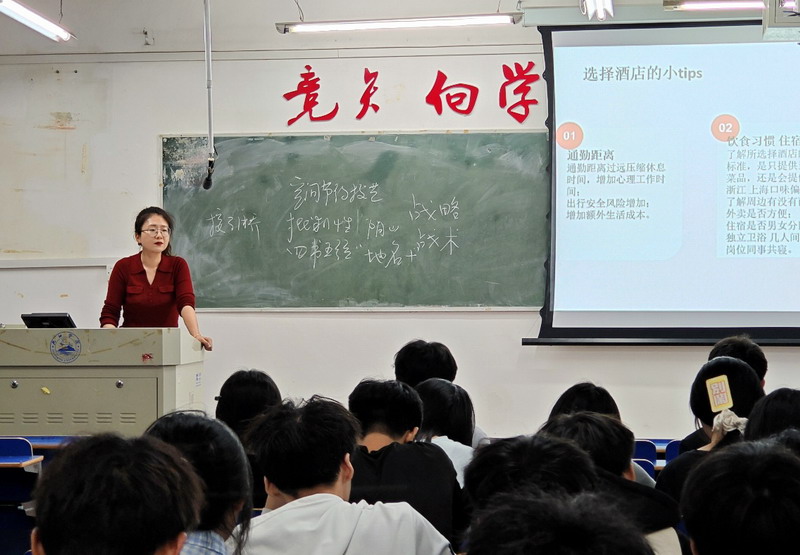 向学
接引桥
批判性 "阴山 战略
"四书五经" 地名+战术
选择酒店的小tips
01
通勤距离
通勤距离过远压缩休息
时间，增加心理工作时
间；
出行安全风险增加；
增加额外生活成本。
02
饮食习惯 住宿
了解所选择酒店
标准，是只提供
菜品，还是会提
浙江 上海口味偏
了解周边有没有
外卖是否方便；
住宿是否男女分
独立卫浴 几人间
岗位同事共寝。